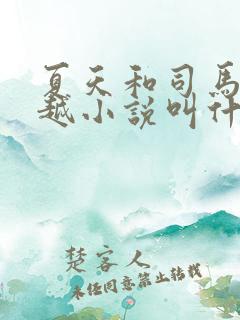 夏天和司馬
越小說叫什
楚客人
未经同意禁止转载